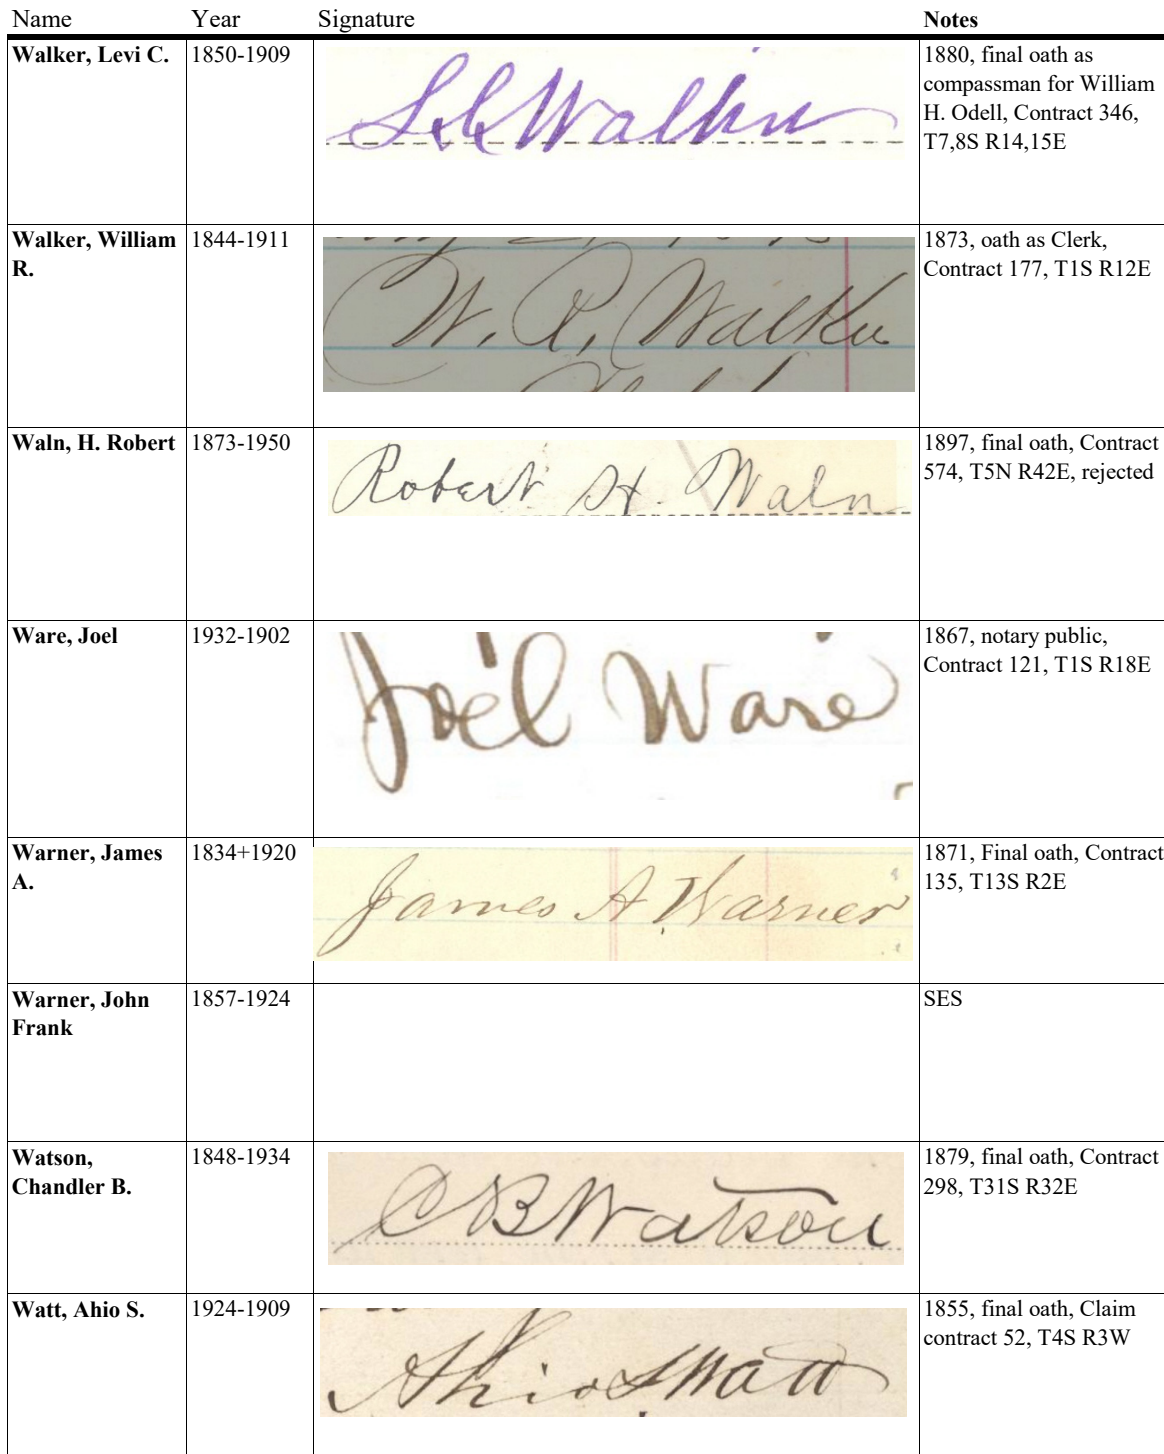 Name Year Signature Notes
Walker, Levi C. 1850-1909 L C Walker 1880, final oath as
compassman for William
H. Odell, Contract 346,
T7,8S R14,15E
Walker, William 1844-1911 W. R. Walker 1873, oath as Clerk,
R. Contract 177, T1S R12E
Waln, H. Robert 1873-1950 Robert H. Waln 1897, final oath, Contract
574, T5N R42E, rejected
Ware, Joel 1932-1902 Joel Ware 1867, notary public,
Contract 121, T1S R18E
Warner, James 1834+1920 James A. Warner 1871, Final oath, Contract
A. 135, T13S R2E
Warner, John 1857-1924 SES
Frank
Watson, 1848-1934 C B Watson 1879, final oath, Contract
Chandler B. 298, T31S R32E
Watt, Ahio S. 1924-1909 Ahio S Watt 1855, final oath, Claim
contract 52, T4S R3W